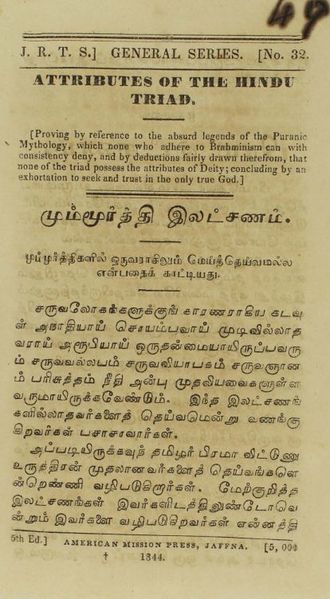 49
J. R. T. S.] GENERAL SERIES. [No. 32.
ATTRIBUTES OF THE HINDU
TRIAD.
[Proving by reference to the absurd legends of the Puranic
Mythology, which none who adhere to Brahminism can with
consistency deny, and by deductions fairly drawn therefrom, that
none of the triad possess the attributes of Deity; concluding by an
exhortation to seek and trust in the only true God.]
மும்மூர்த்தி இலட்சணம்.
மும்மூர்த்திகளில் ஒருவராகிலும் மெய்த்தெய்வமல்ல
என்பதைக் காட்டியது.
சருவலோகங்களுக்குங் காரணராகிய கடவு
ள் அநாதியாய் சொயம்புவாய் முடிவில்லாத
வராய் அரூபியாய் ஒருதன்மையாயிருப்பவரு
ம் சருவவல்லபம் சருவவியாபகம் சருவஞான
ம் பரிசுத்தம் நீதி அன்பு முதலியவைகளுள்ள
வருமாயிருக்கவேண்டும். இந்த இலட்சணங்
களில்லாதவர்களைத் தெய்வமென்று வணங்கு
கிறவர்கள் பாவிகளாவார்கள்.
அப்படியிருக்கவுந் தமிழர் பிரமா விட்டுணு
உருத்திரன் முதலானவர்களைத் தெய்வங்களெ
ன்றெண்ணி வழிபடுகிறார்கள். மேற்குறித்த
இலட்சணங்கள் இவர்களிடத்திலுண்டோவெ
ன்றும் இவர்களை வழிபடுகிறவர்கள் என்னத்தி
5th Ed.] AMERICAN MISSION PRESS, JAFFNA. [5,000
† 1844.